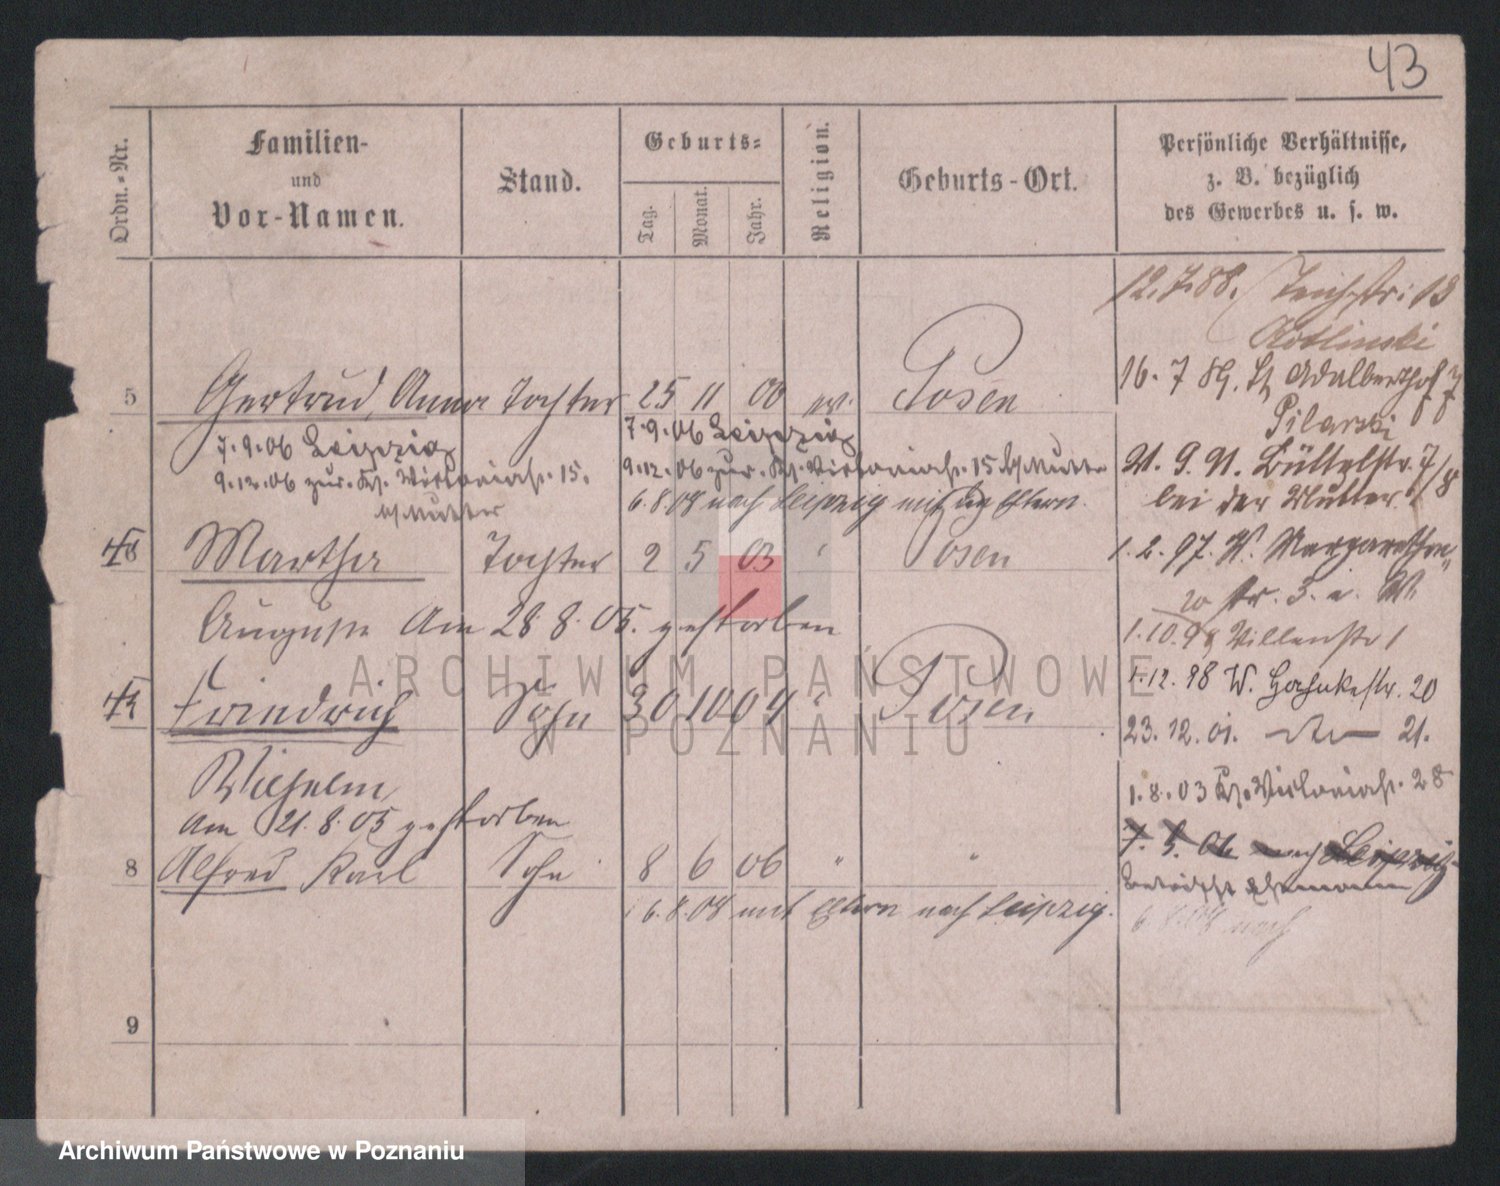 43
Ordn.-Nr.
Familien-
und
Vor-Namen.
Stand.
Geburts-
Tag.
Monat.
Jahr.
Religion.
Geburts-Ort.
Persönliche Verhältnisse,
z. B. bezüglich
des Gewerbes u. s. w.
12.7.88. Teichstr: 13
Kotlinski
5 Gertrud, Anna Tochter 25 11 00 ev. Posen
16. 7 89. St Adalberthof 7
Pilarski
7.9.06 Leipzig
7.9.06 Leipzig
9.12.06 zur. Victoriastr. 15.
9.12.06 zur. Victoriastr. 15 Mutter
b/Mutter
6.8.08 nach Leipzig mit den Eltern.
21. 9. 91. Büttelstr. 7/8
bei der Mutter
Martha Tochter 2 5 03 Posen
1. 2. 97. W. Margarethen
str. 3.
Auguste Am 28.8.05. gestorben
1.10.98 Villenstr 1
Friedrich Sohn 30 10 04 " Posen
1.12.98 W. Hohnkestr. 20
23.12.01. 21.
Wilhelm
1.8.03 Victoriastr. 28
Am 21.8.05 gestorben
7. 9. 06 nach Leipzig
8 Alfred Karl Sohn 8 6 06 " "
Ehemann
6.8.08 mit Eltern nach Leipzig.
6.8.08 nach
9
ARCHIWUM PAŃSTWOWE
W POZNANIU
Archiwum Państwowe w Poznaniu